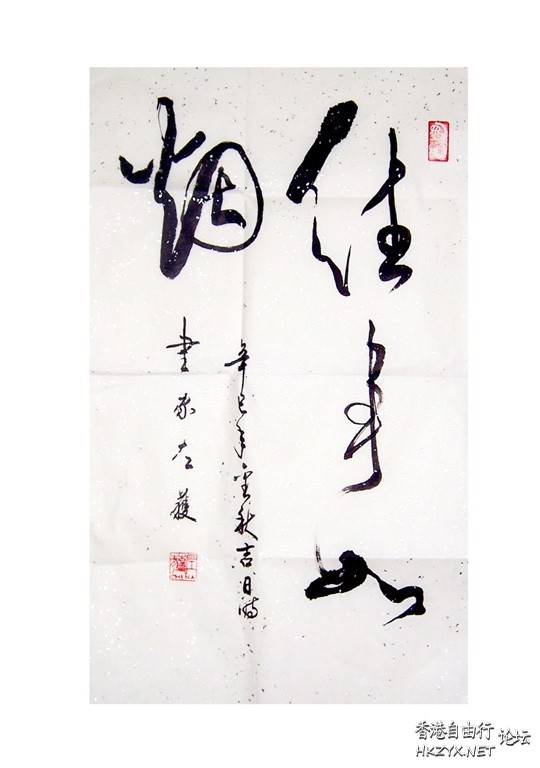 往事如
烟
辛巳年金秋吉日時
書
香港自由行 论坛
HKZYX.NET